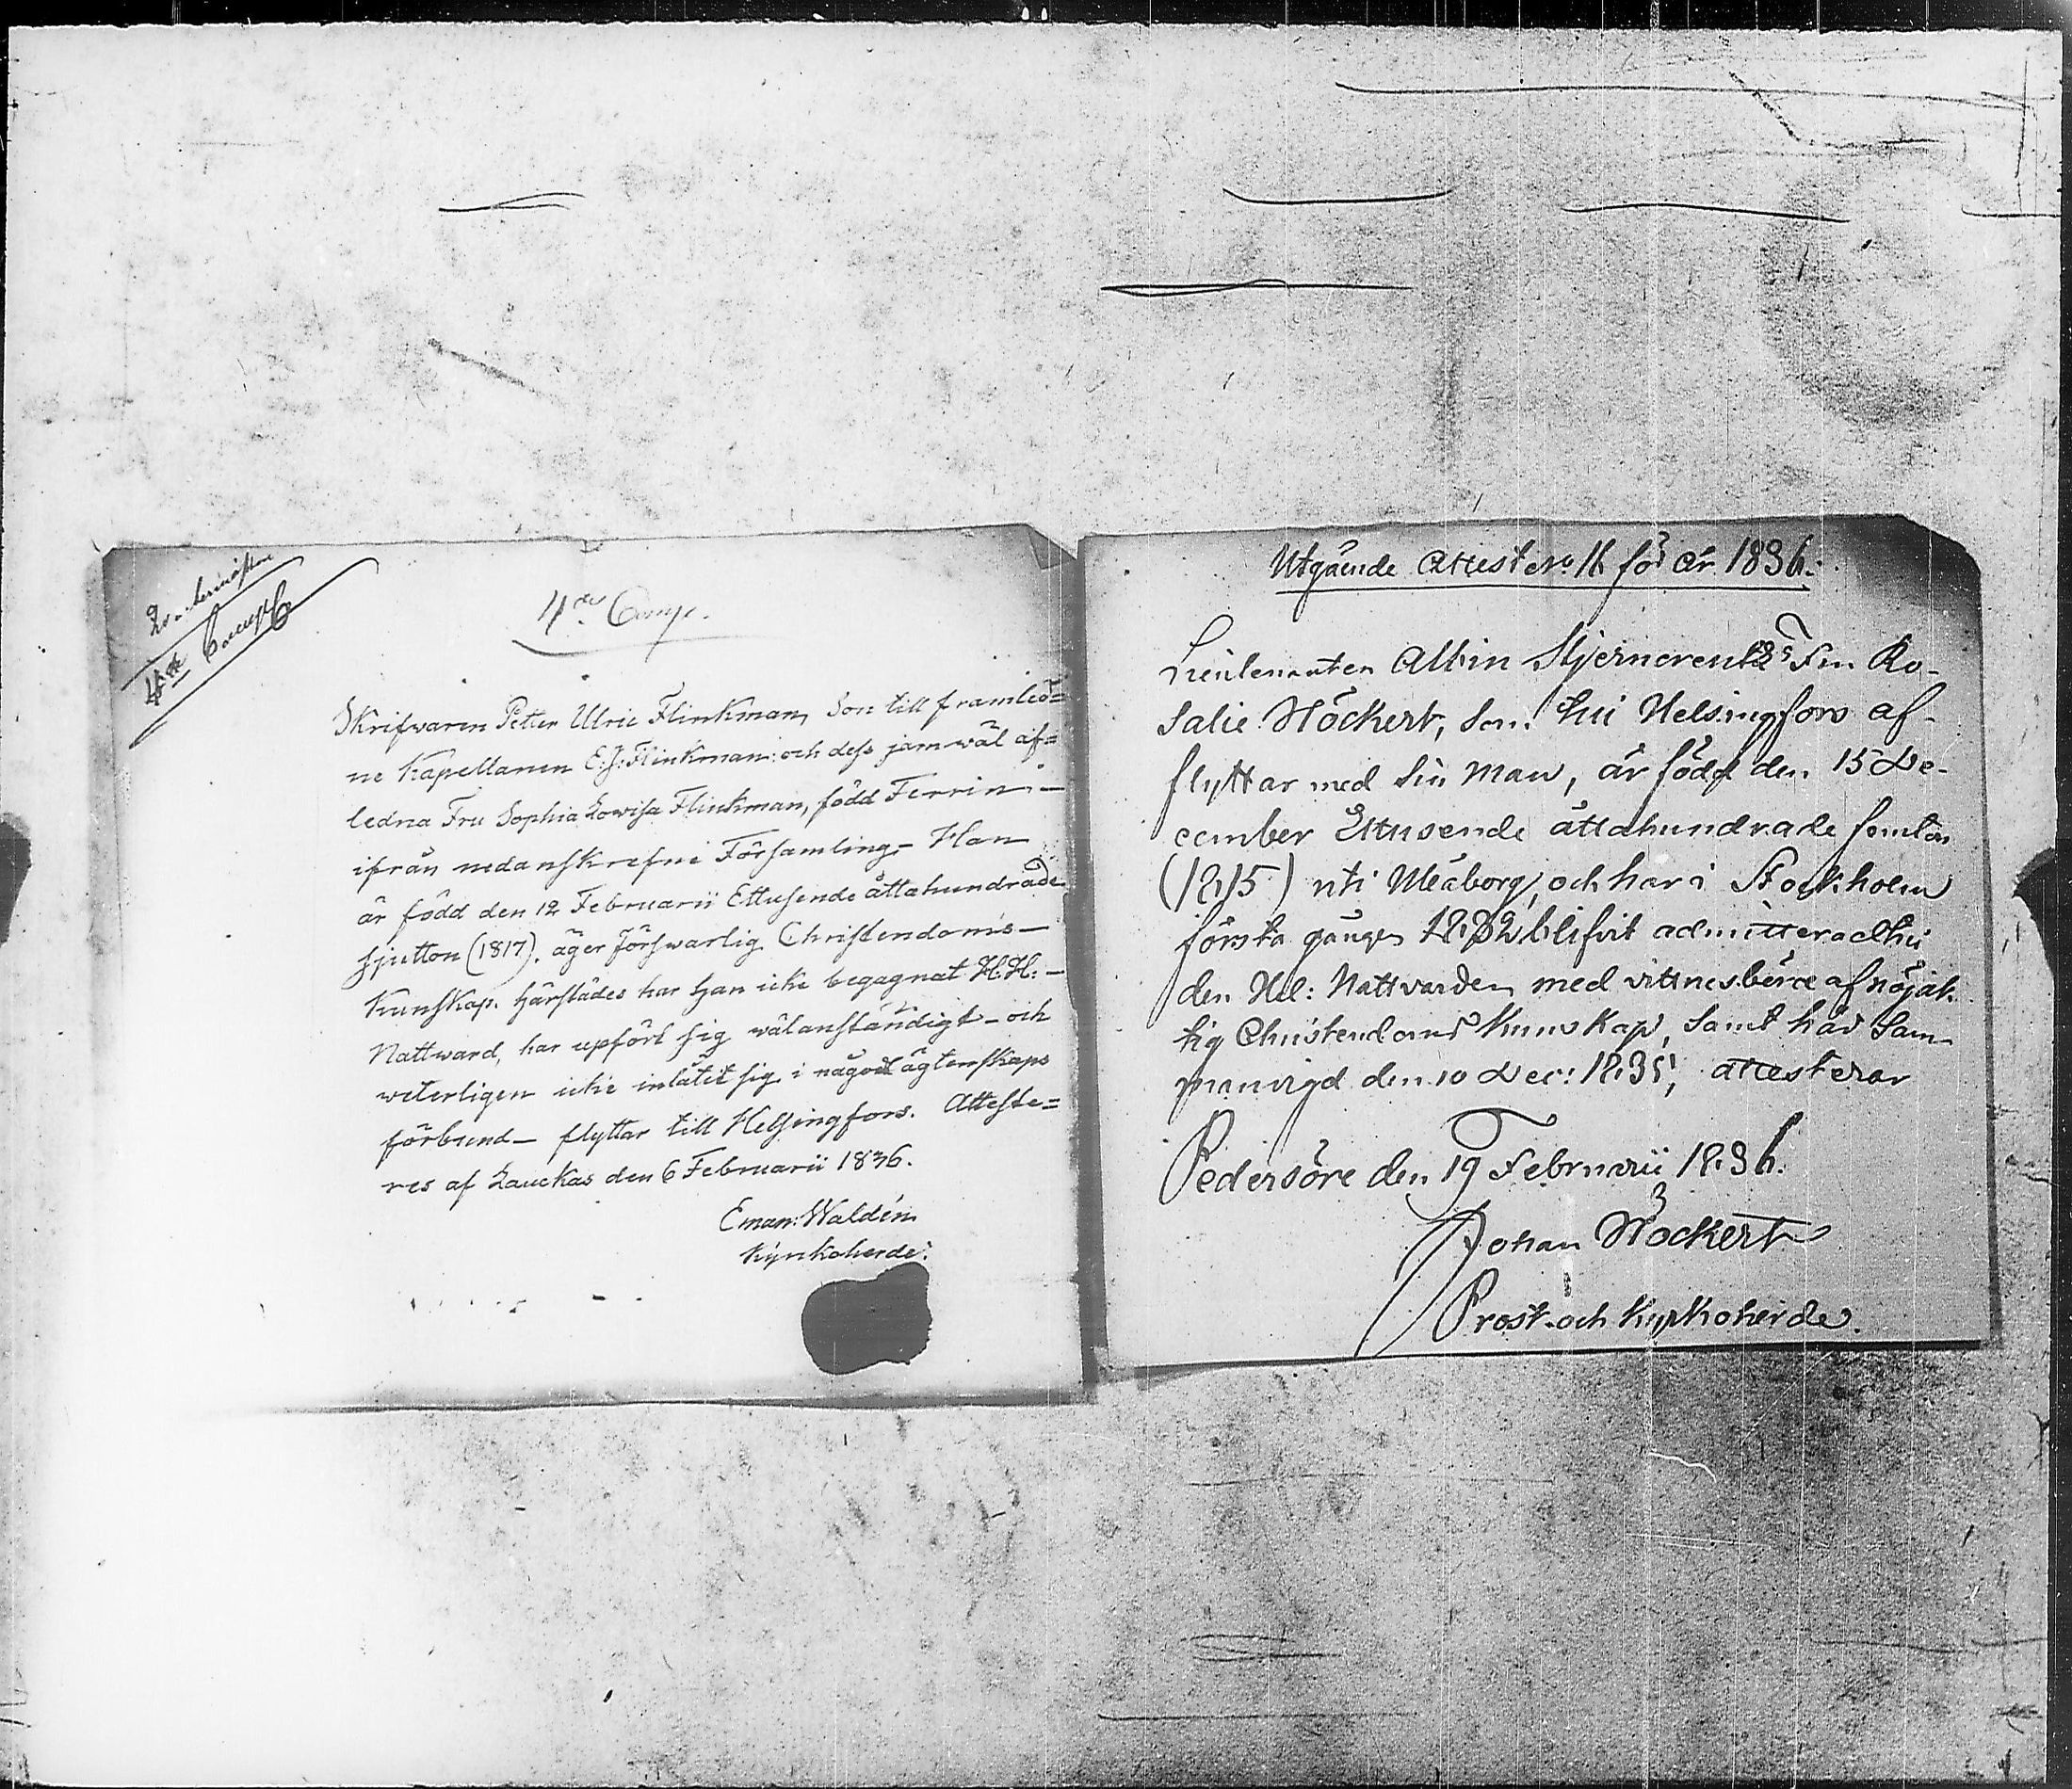 4de Comp.
4de Comp.
Skrifwaren Petter Ulric Flinkman, Son till framled=
ne Kapellanen E:J:Flinkman: och dess jamwäl af=
ledna Fru Sophia Lowisa Flinkman, född Ferrin -
ifrån nedanskrefne Församling - Han
är född den 12 Februarii Ettusende åttahundrade
sjutton (1817). äger försvarlig Christendoms-
Kunskap. härstädes har han icke begagnat H.H: -
Nattward, har upfört sig wälanständigt - och
weterligen icke inlåtit sig i något ägtenskaps
förbund - flyttar till Helsingfors. Atteste=
res af Lauckas den 6 Februarii 1836.
Eman: Waldén
Kyrkoherde.
Utgående Attest No 16 för år 1836.
Lieutenanten Albin Stjerncreutz's Fru Ro-
salie Höckert, som till Helsingfors af-
flyttar med sin man, är född den 15 De-
cember Ettusende åttahundrade femton
(1815) uti Uleåborg, och har i Stockholm
första gången 1832 blifvit admitterad till
den Hel: Nattvarden med vittnesbörd af nöjak-
tig Christendoms Kunskap, samt här Sam-
manvigd den 10 Dec: 1835; attesterar
Pedersöre den 19 Februarii 1836.
Johan Höckert
Prost och Kyrkoherde.